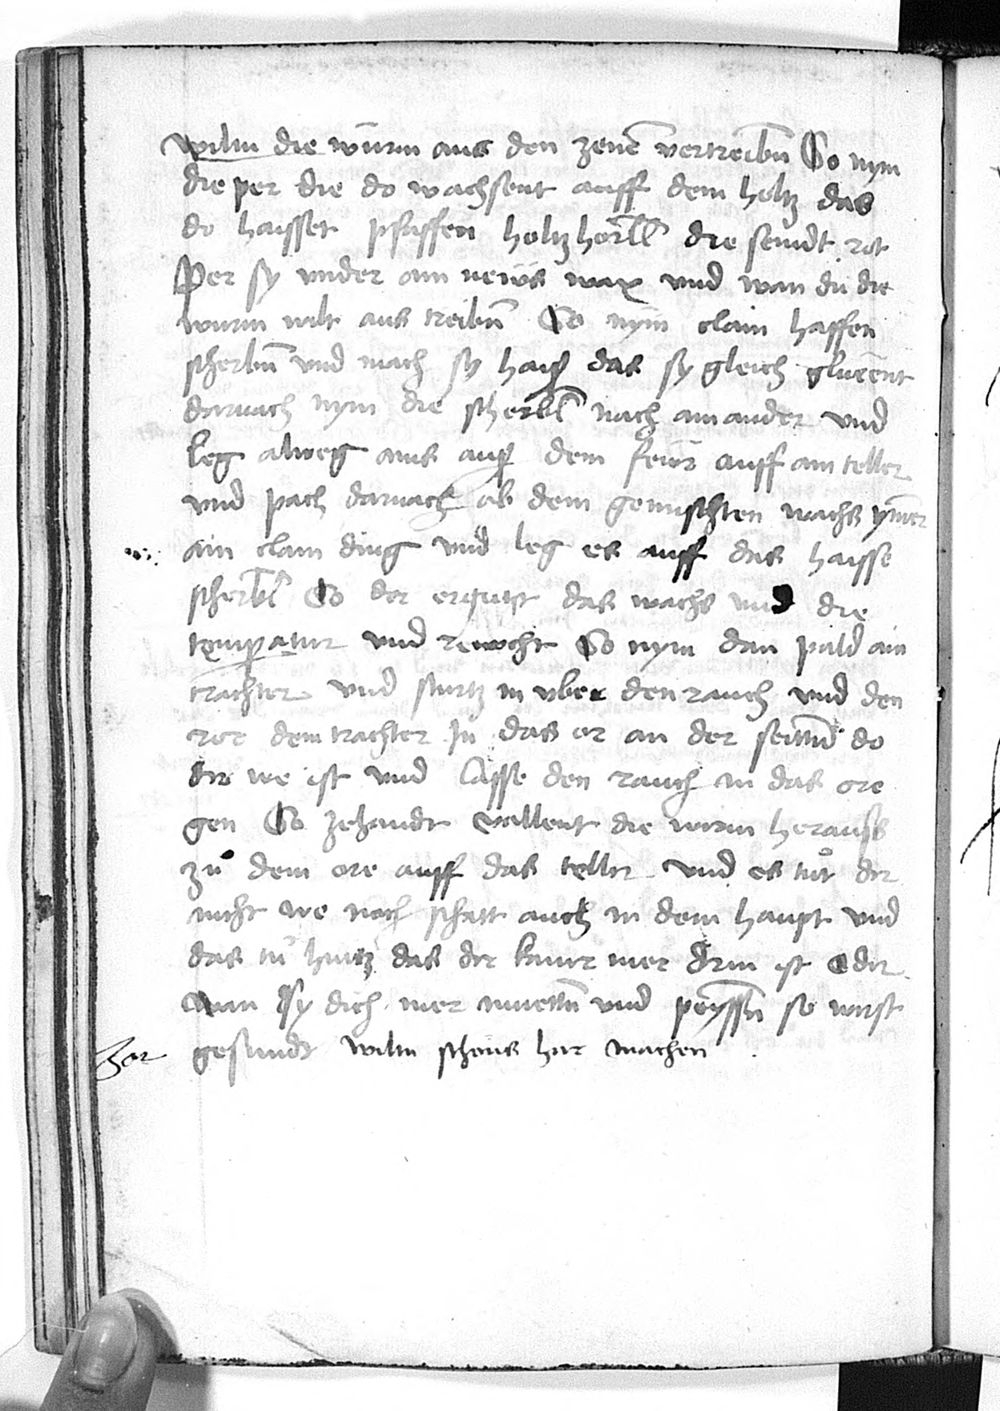 wiltu die würm aus den zenē vertreibn̄ So nym
die per die do wachsent auff dem holtz das
do haisset pfaffen holtz hörll die seindt rot
Per sy vnder ain newes wax vnd wan dü die
würm wilt aus treibn̄ So nÿm clain haffen
scherbn̄ vnd mach sy haiß das sy gleich glüēnt
darnach nym die scherbl̄ nach ainander vnd
leg alweg ains auß dem feẅr auff ain teller
vnd pach darnach ab dem gemischten wachs ym̄er
ain clain ding vnd leg es auff das haisse
scherbl̄ So der das wachs vnd die
temperatur vnd rewcht So nym dan pald ain
trachter vnd sturtz in vber den rauch vnd den
ror dem trachter In das or an der seittn̄ do
dir we ist vnd lasse den rauch in das ore
gen So zehandt vallent die würm herauß
zů dem ore auff das teller vnd es tůt dir
nicht we noch schatt auch in dem haupt vnd
das tů hintz das der kainr mer drin ist Oder
wan sy dich mer müettn̄ vnd peyssn̄ so wirst
gesundt wiltu schöns har machen
har